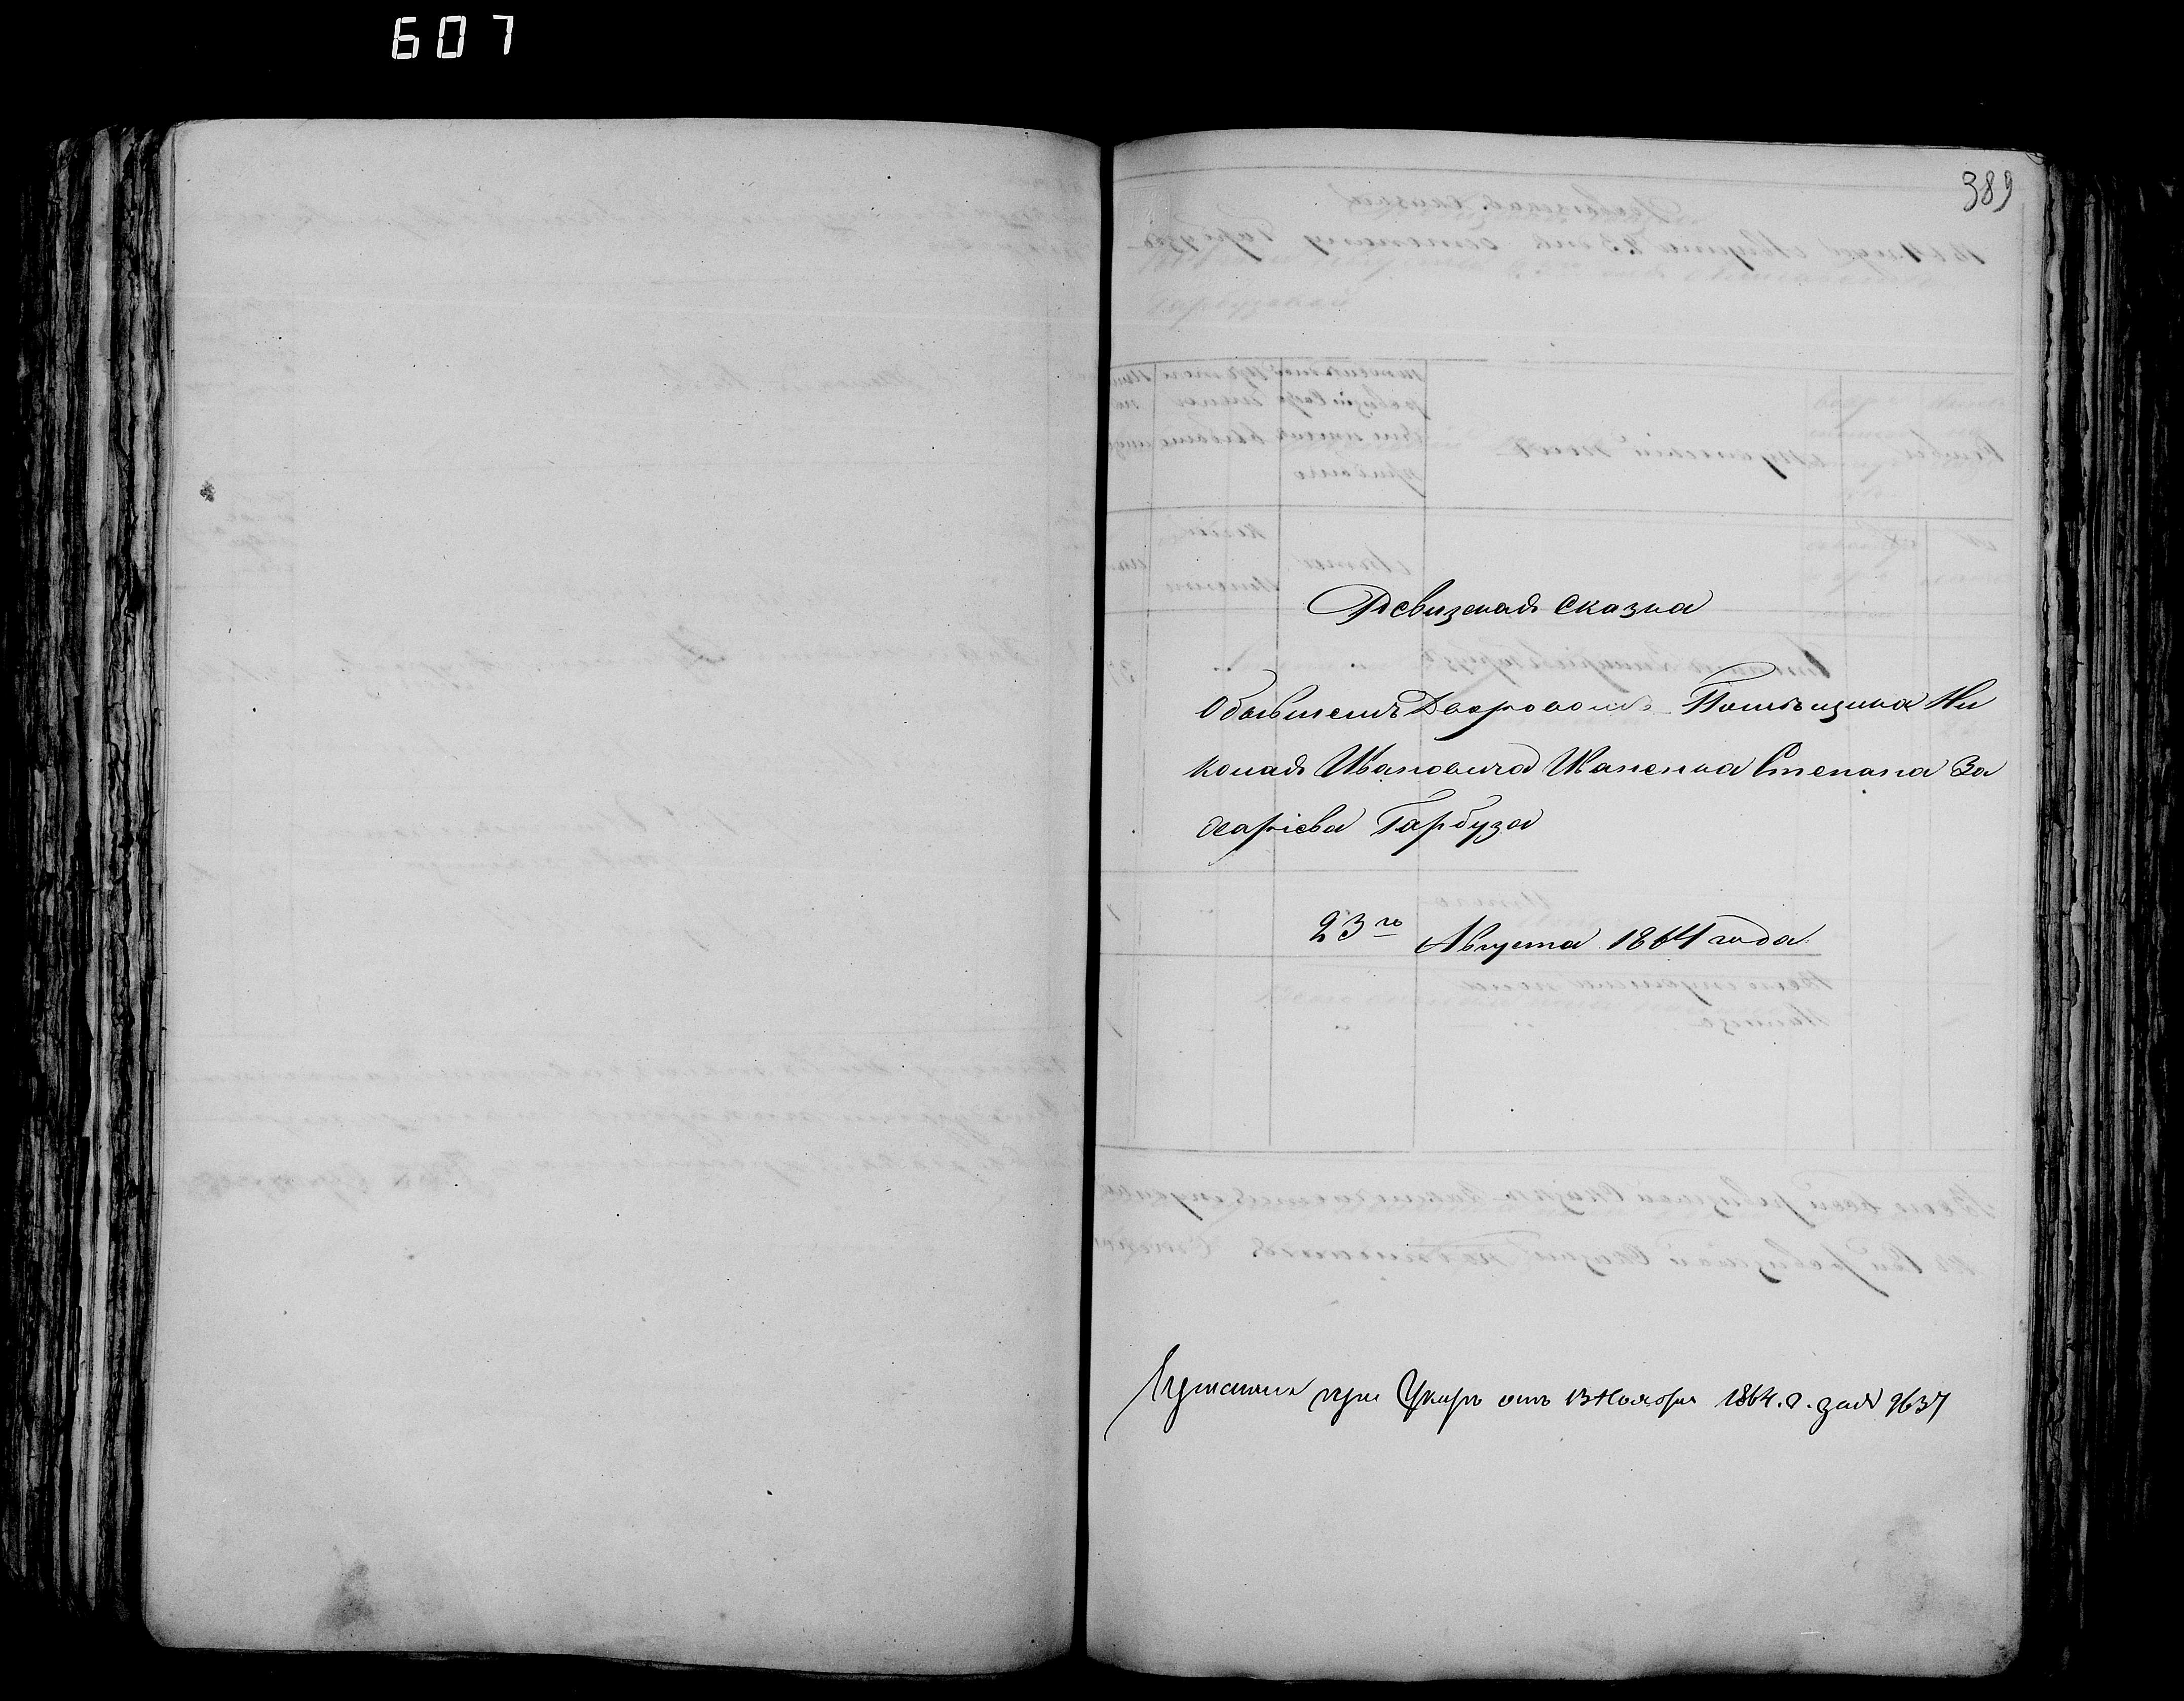 607
389
Ревизская Сказка
О бывшемъ Дворовомъ Помѣщика Ни
колая Ивановича Иваненка Степана За
харіева Гарбуза
23го Августа 1864 года
при Указѣ отъ 13 Ноября 1864. г. за № 9637